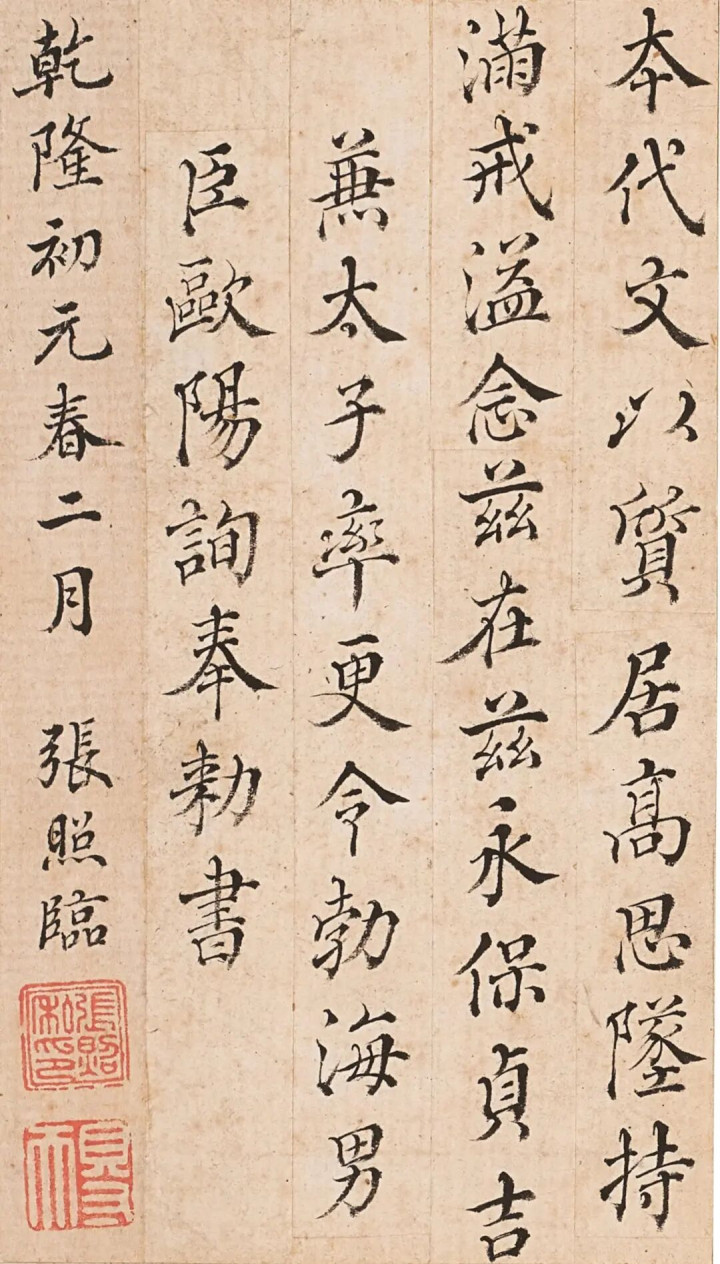 本代文以質居高思墜持
滿戒溢念茲在茲永保貞吉
兼太子率更令勃海男
臣歐陽詢奉勑書
乾隆初元春二月 張照臨
張照私印